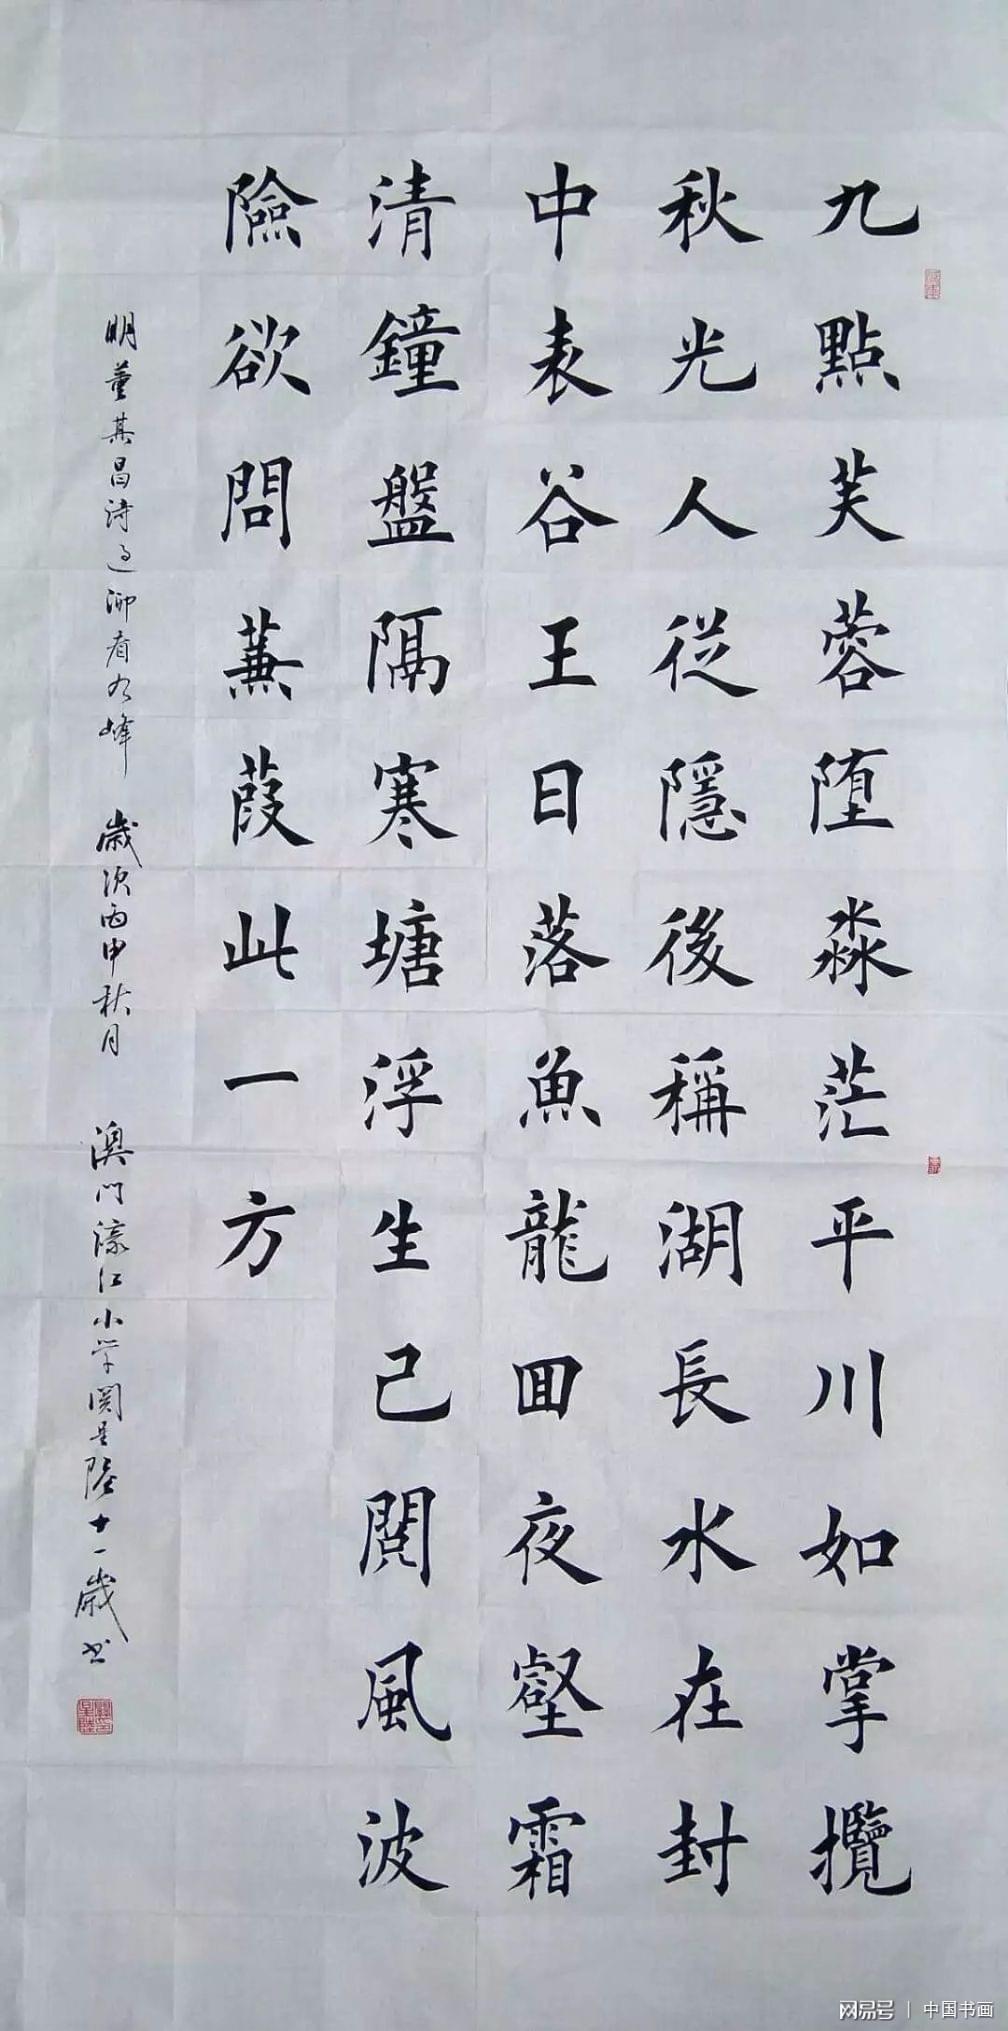 九點芙蓉堕淼茫平川如掌攬
秋光人從隱後稱湖長水在封
中表谷王日落魚龍回夜壑霜
清鐘盤隔寒塘浮生已閲風波
險欲問蒹葭此一方
明董其昌詩過泖看九峰 歲次丙申秋月 澳門濠江小学関星陸十一歲书
网易号 | 中国书画